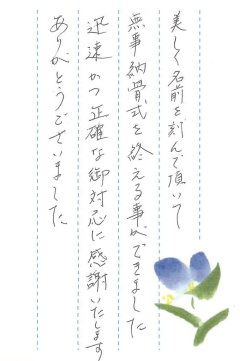 美しく名前を刻んで頂いて
無事納骨式を終える事ができました
迅速かつ正確な御対応に感謝いたします
ありがとうございました